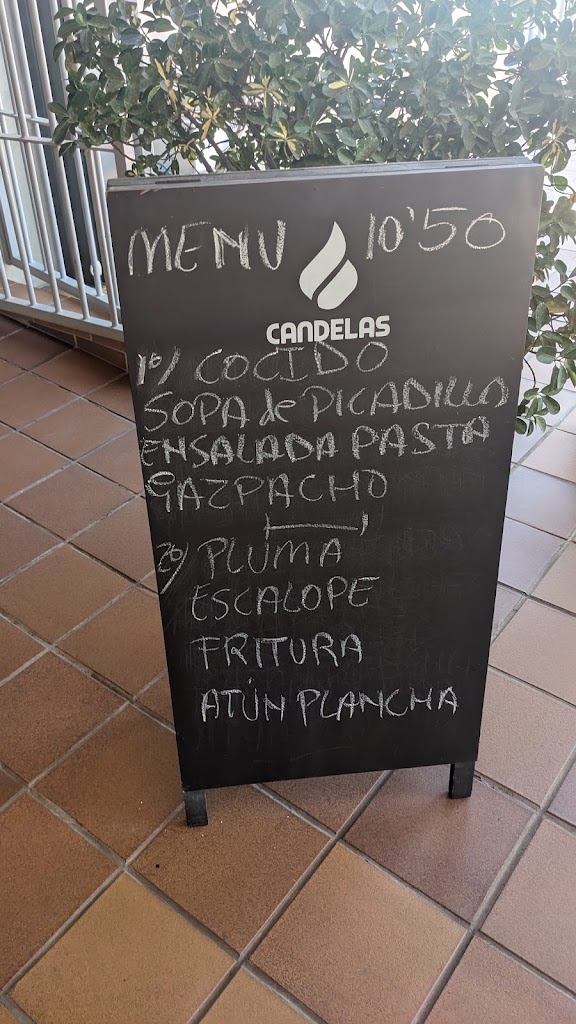 MENU 10'50
CANDELAS
1º/ COCIDO
SOPA de PICADILLO
ENSALADA PASTA
GAZPACHO
2º/ PLUMA
ESCALOPE
FRITURA
ATÚN PLANCHA